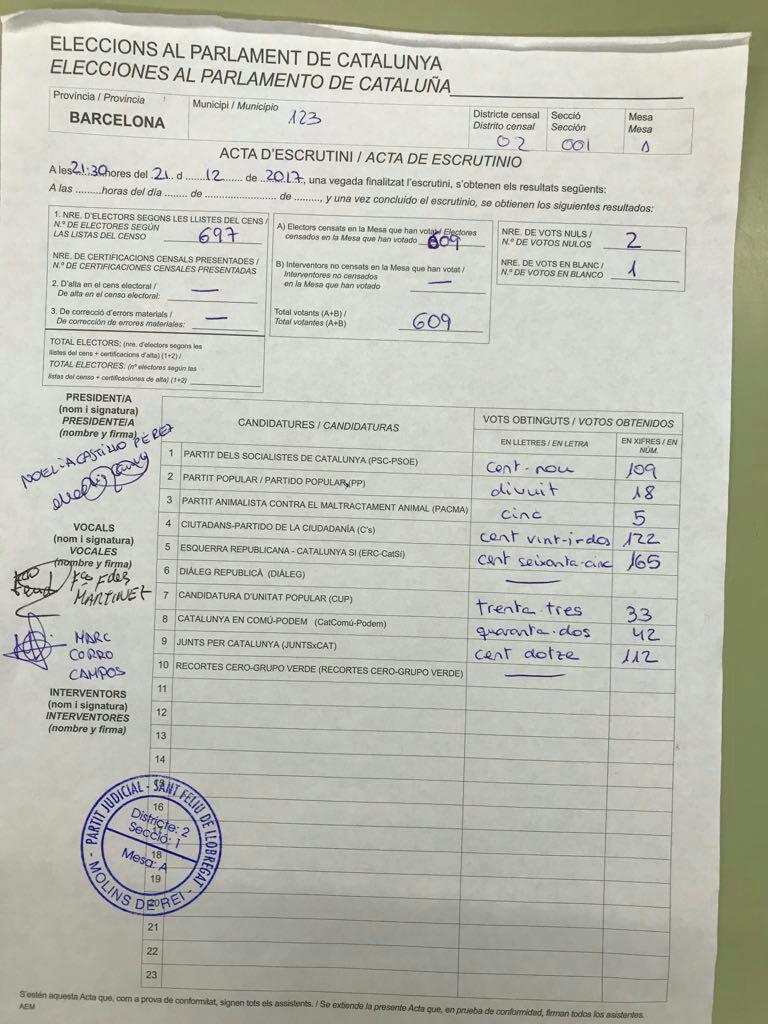 ELECCIONS AL PARLAMENT DE CATALUNYA
ELECCIONES AL PARLAMENTO DE CATALUÑA
Província / Provincia
BARCELONA
Municipi / Municipio
123
Districte censal
Distrito censal
02
Secció
Sección
001
Mesa
Mesa
A
ACTA D'ESCRUTINI / ACTA DE ESCRUTINIO
A les 21:30 hores del 21 d ......12...... de 2017, una vegada finalitzat l'escrutini, s'obtenen els resultats següents:
A las .........horas del día ........ de ......................... de ........., y una vez concluido el escrutinio, se obtienen los siguientes resultados:
1. NRE. D'ELECTORS SEGONS LES LLISTES DEL CENS /
N.º DE ELECTORES SEGÚN
LAS LISTAS DEL CENSO 697
NRE. DE CERTIFICACIONS CENSALS PRESENTADES /
N.º DE CERTIFICACIONES CENSALES PRESENTADAS
2. D'alta en el cens electoral /
De alta en el censo electoral: —
3. De correcció d'errors materials /
De corrección de errores materiales: —
TOTAL ELECTORS: (nre. d'electors segons les
llistes del cens + certificacions d'alta) (1+2) /
TOTAL ELECTORES: (nº electores según las
listas del censo + certificaciones de alta) (1+2)
A) Electors censats en la Mesa que han votat / Electores
censados en la Mesa que han votado 609
B) Interventors no censats en la Mesa que han votat /
Interventores no censados
en la Mesa que han votado —
Total votants (A+B) /
Total votantes (A+B) 609
NRE. DE VOTS NULS /
N.º DE VOTOS NULOS 2
NRE. DE VOTS EN BLANC /
N.º DE VOTOS EN BLANCO 1
PRESIDENT/A
(nom i signatura)
PRESIDENTE/A
(nombre y firma)
NOELIA CASTILLO PÉREZ
VOCALS
(nom i signatura)
VOCALES
(nombre y firma)
Fco Fdez
MARTINEZ
MARC
CORRO
CAMPOS
INTERVENTORS
(nom i signatura)
INTERVENTORES
(nombre y firma)
CANDIDATURES / CANDIDATURAS
VOTS OBTINGUTS / VOTOS OBTENIDOS
EN LLETRES / EN LETRA
EN XIFRES / EN
NÚM.
1 PARTIT DELS SOCIALISTES DE CATALUNYA (PSC-PSOE) cent-nou 109
2 PARTIT POPULAR / PARTIDO POPULAR (PP) divuit 18
3 PARTIT ANIMALISTA CONTRA EL MALTRACTAMENT ANIMAL (PACMA) cinc 5
4 CIUTADANS-PARTIDO DE LA CIUDADANÍA (C's) cent vint-i-dos 122
5 ESQUERRA REPUBLICANA - CATALUNYA SI (ERC-CatSí) cent seixanta-cinc 165
6 DIÀLEG REPUBLICÀ (DIÀLEG) —
7 CANDIDATURA D'UNITAT POPULAR (CUP) trenta-tres 33
8 CATALUNYA EN COMÚ-PODEM (CatComú-Podem) quaranta-dos 42
9 JUNTS PER CATALUNYA (JUNTSxCAT) cent dotze 112
10 RECORTES CERO-GRUPO VERDE (RECORTES CERO-GRUPO VERDE) —
11
12
13
14
15
16
17
18
19
20
21
22
23
PARTIT JUDICIAL - SANT FELIU DE LLOBREGAT
Districte: 2
Secció: 1
Mesa: A
- MOLINS DE REI -
S'estén aquesta Acta que, com a prova de conformitat, signen tots els assistents. / Se extiende la presente Acta que, en prueba de conformidad, firman todos los asistentes.
AEM